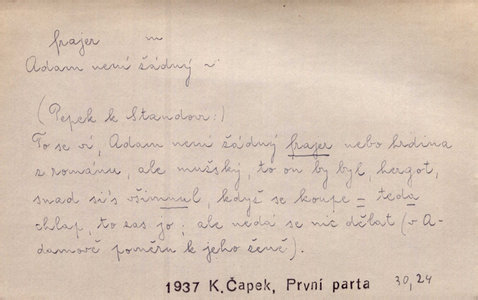 frajer m
Adam není žádný ~
(Pepek k Standovi:)
To se ví, Adam není žádný frajer nebo hrdina
z románu, ale mužský, to on by byl, hergot,
snad sis všimnul, když se koupe – teda
chlap, to zas jo; ale nedá se nic dělat (v A-
damově poměru k jeho ženě).
1937 K.Čapek, První parta 30,24